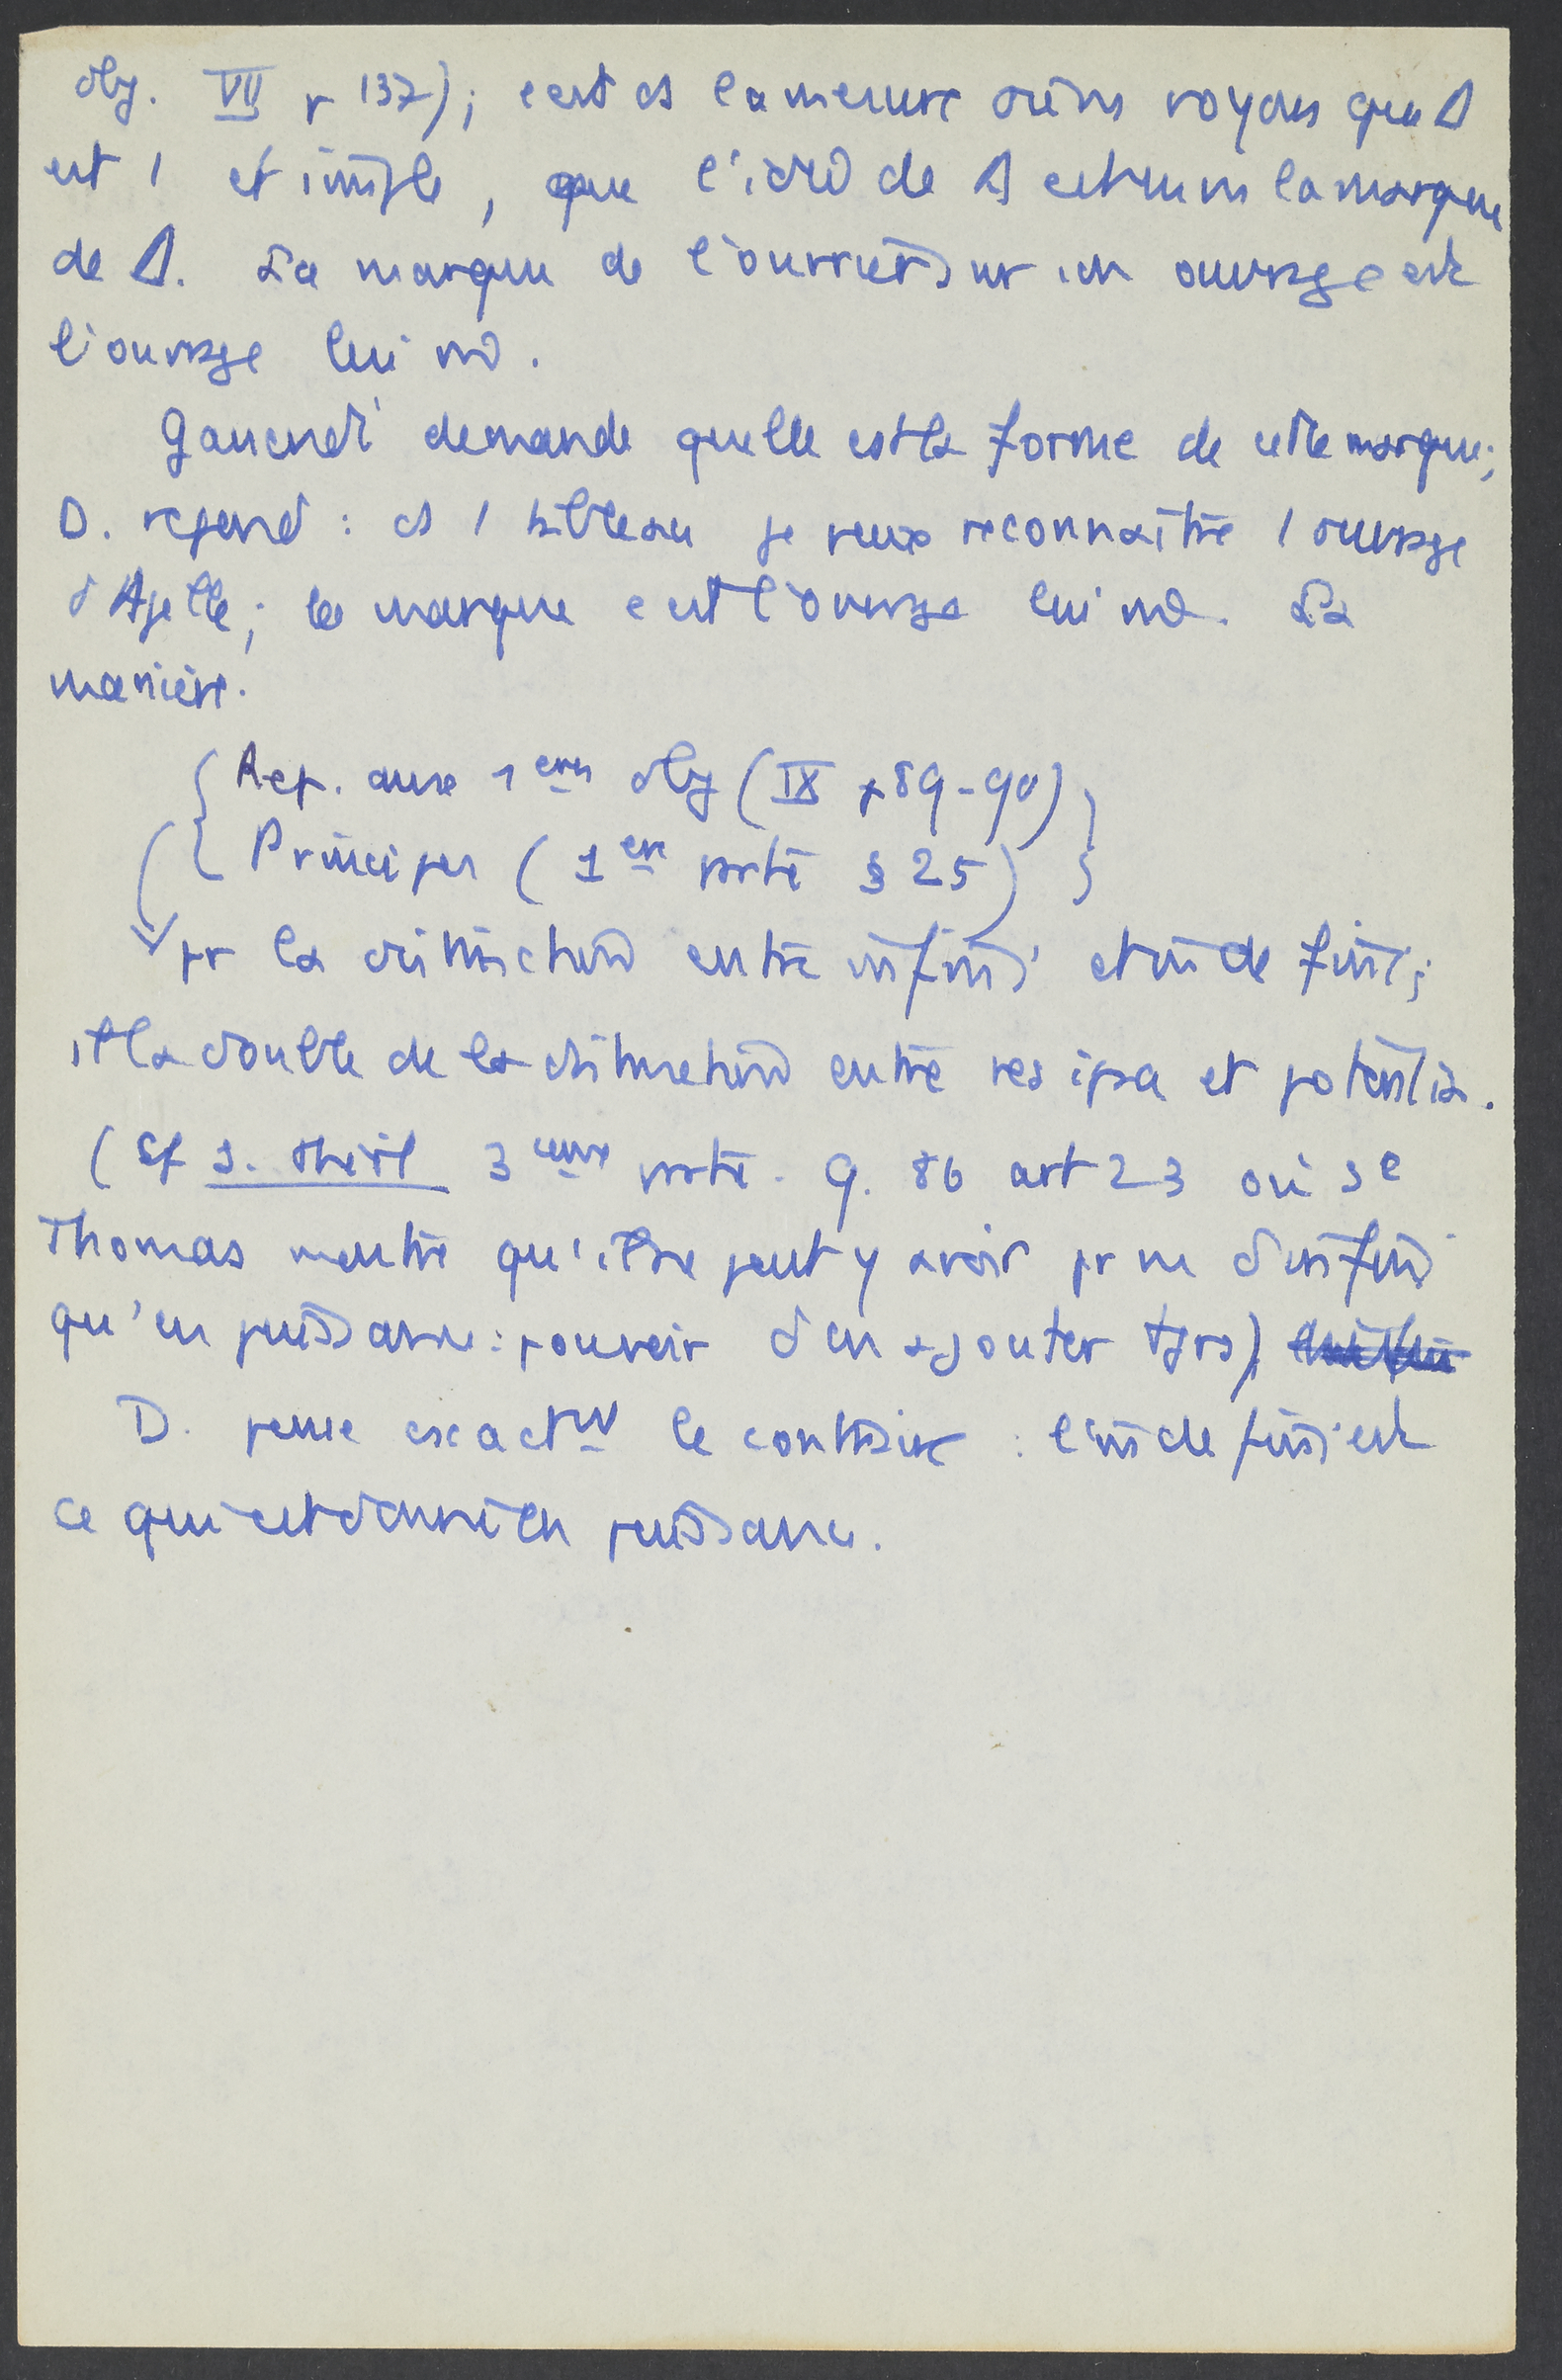 obj. VII p 137); c'est ds la mesure où ns voyons que Δ
est 1 et simple, que l'idée de Δ est en ns la marque
de Δ. La marque de l'ouvrier sur son ouvrage est
l'ouvrage lui mê.
Gassendi demande quelle est la forme de cette marque;
D. repond : ds 1 tableau je peux reconnaître 1 ouvrage
d'Apelle; la marque c'est l'ouvrage lui mê. La
manière.
Rep. aux 1eres obj (IX p 89-90)
Principes (1ere partie § 25)
pr la distinction entre infini et indefini;
, et la double de la distinction entre res ipsa et potentia.
(Cf S. théol 3eme partie. Q. 86 art 2 3 où St
Thomas montre qu'il ne peut y avoir pr ns d'infini
qu'en puissance: pouvoir d'en ajouter tjrs)
D. pense exactmt le contraire : l'indefini est
ce qui est donné en puissance.